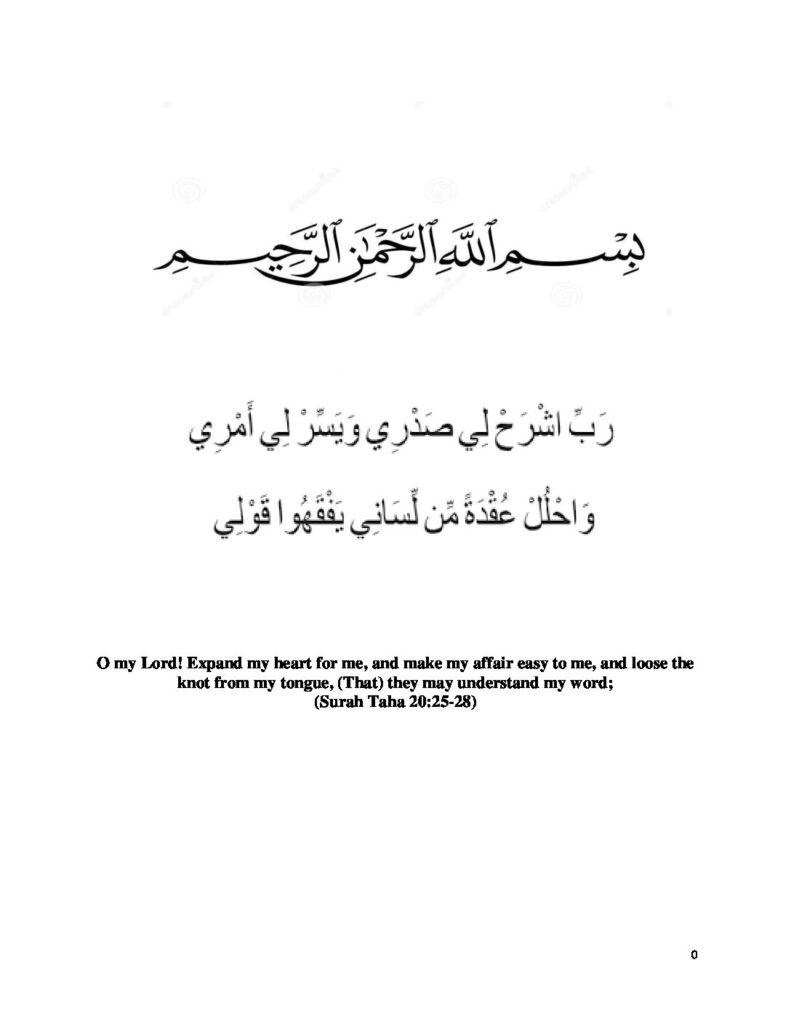 بِسْمِ ٱللَّهِ ٱلرَّحْمَٰنِ ٱلرَّحِيمِ
رَبِّ اشْرَحْ لِي صَدْرِي وَيَسِّرْ لِي أَمْرِي
وَاحْلُلْ عُقْدَةً مِّن لِّسَانِي يَفْقَهُوا قَوْلِي
O my Lord! Expand my heart for me, and make my affair easy to me, and loose the
knot from my tongue, (That) they may understand my word;
(Surah Taha 20:25-28)
0